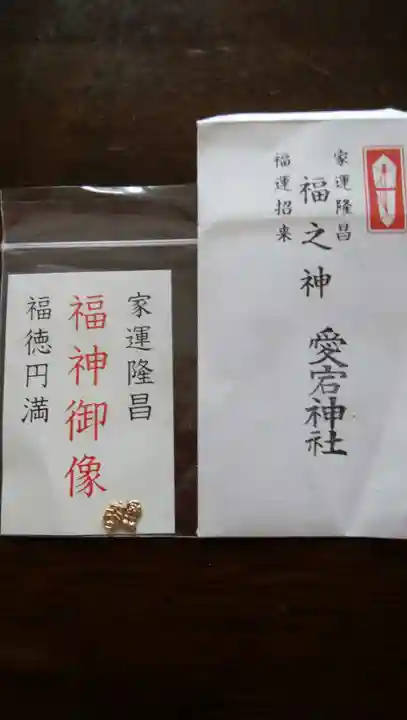 家運隆昌
福運招来
福之神 愛宕神社
家運隆昌
福神御像
福徳円満